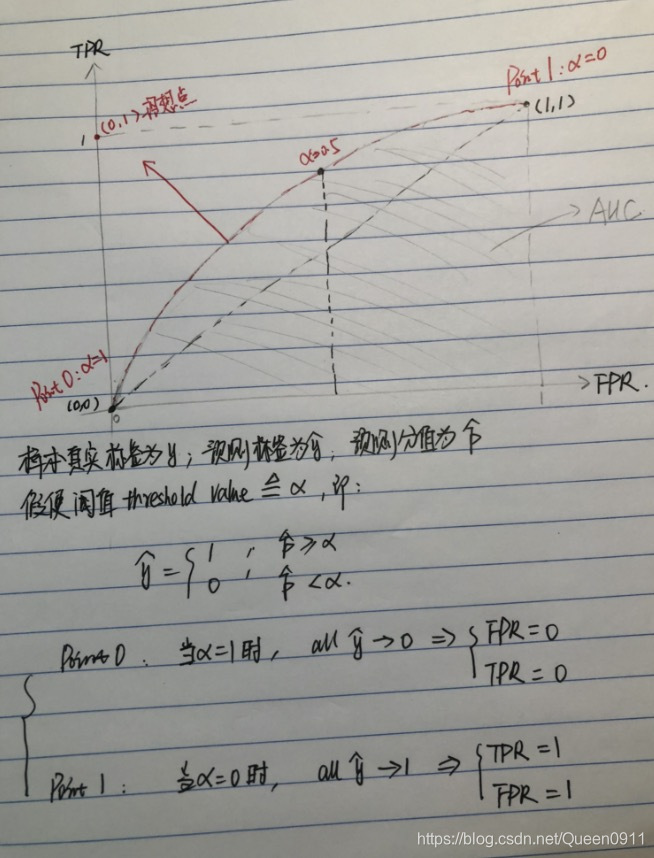 TPR
Point 1: α=0
(0,1)理想点
1
(1,1)
α=0.5
AUC
Point 0: α=1
FPR.
(0,0)
0
样本真实标签为y; 预测标签为ŷ; 预测分值为p̂
假使阈值 threshold value ≜ α, 即:
ŷ = { 1 ; p̂ ⩾ α
0 ; p̂ < α.
Point 0: 当α=1时, all ŷ → 0 ⇒ { FPR = 0
TPR = 0
Point 1: 当α=0时, all ŷ → 1 ⇒ { TPR = 1
FPR = 1
https://blog.csdn.net/Queen0911